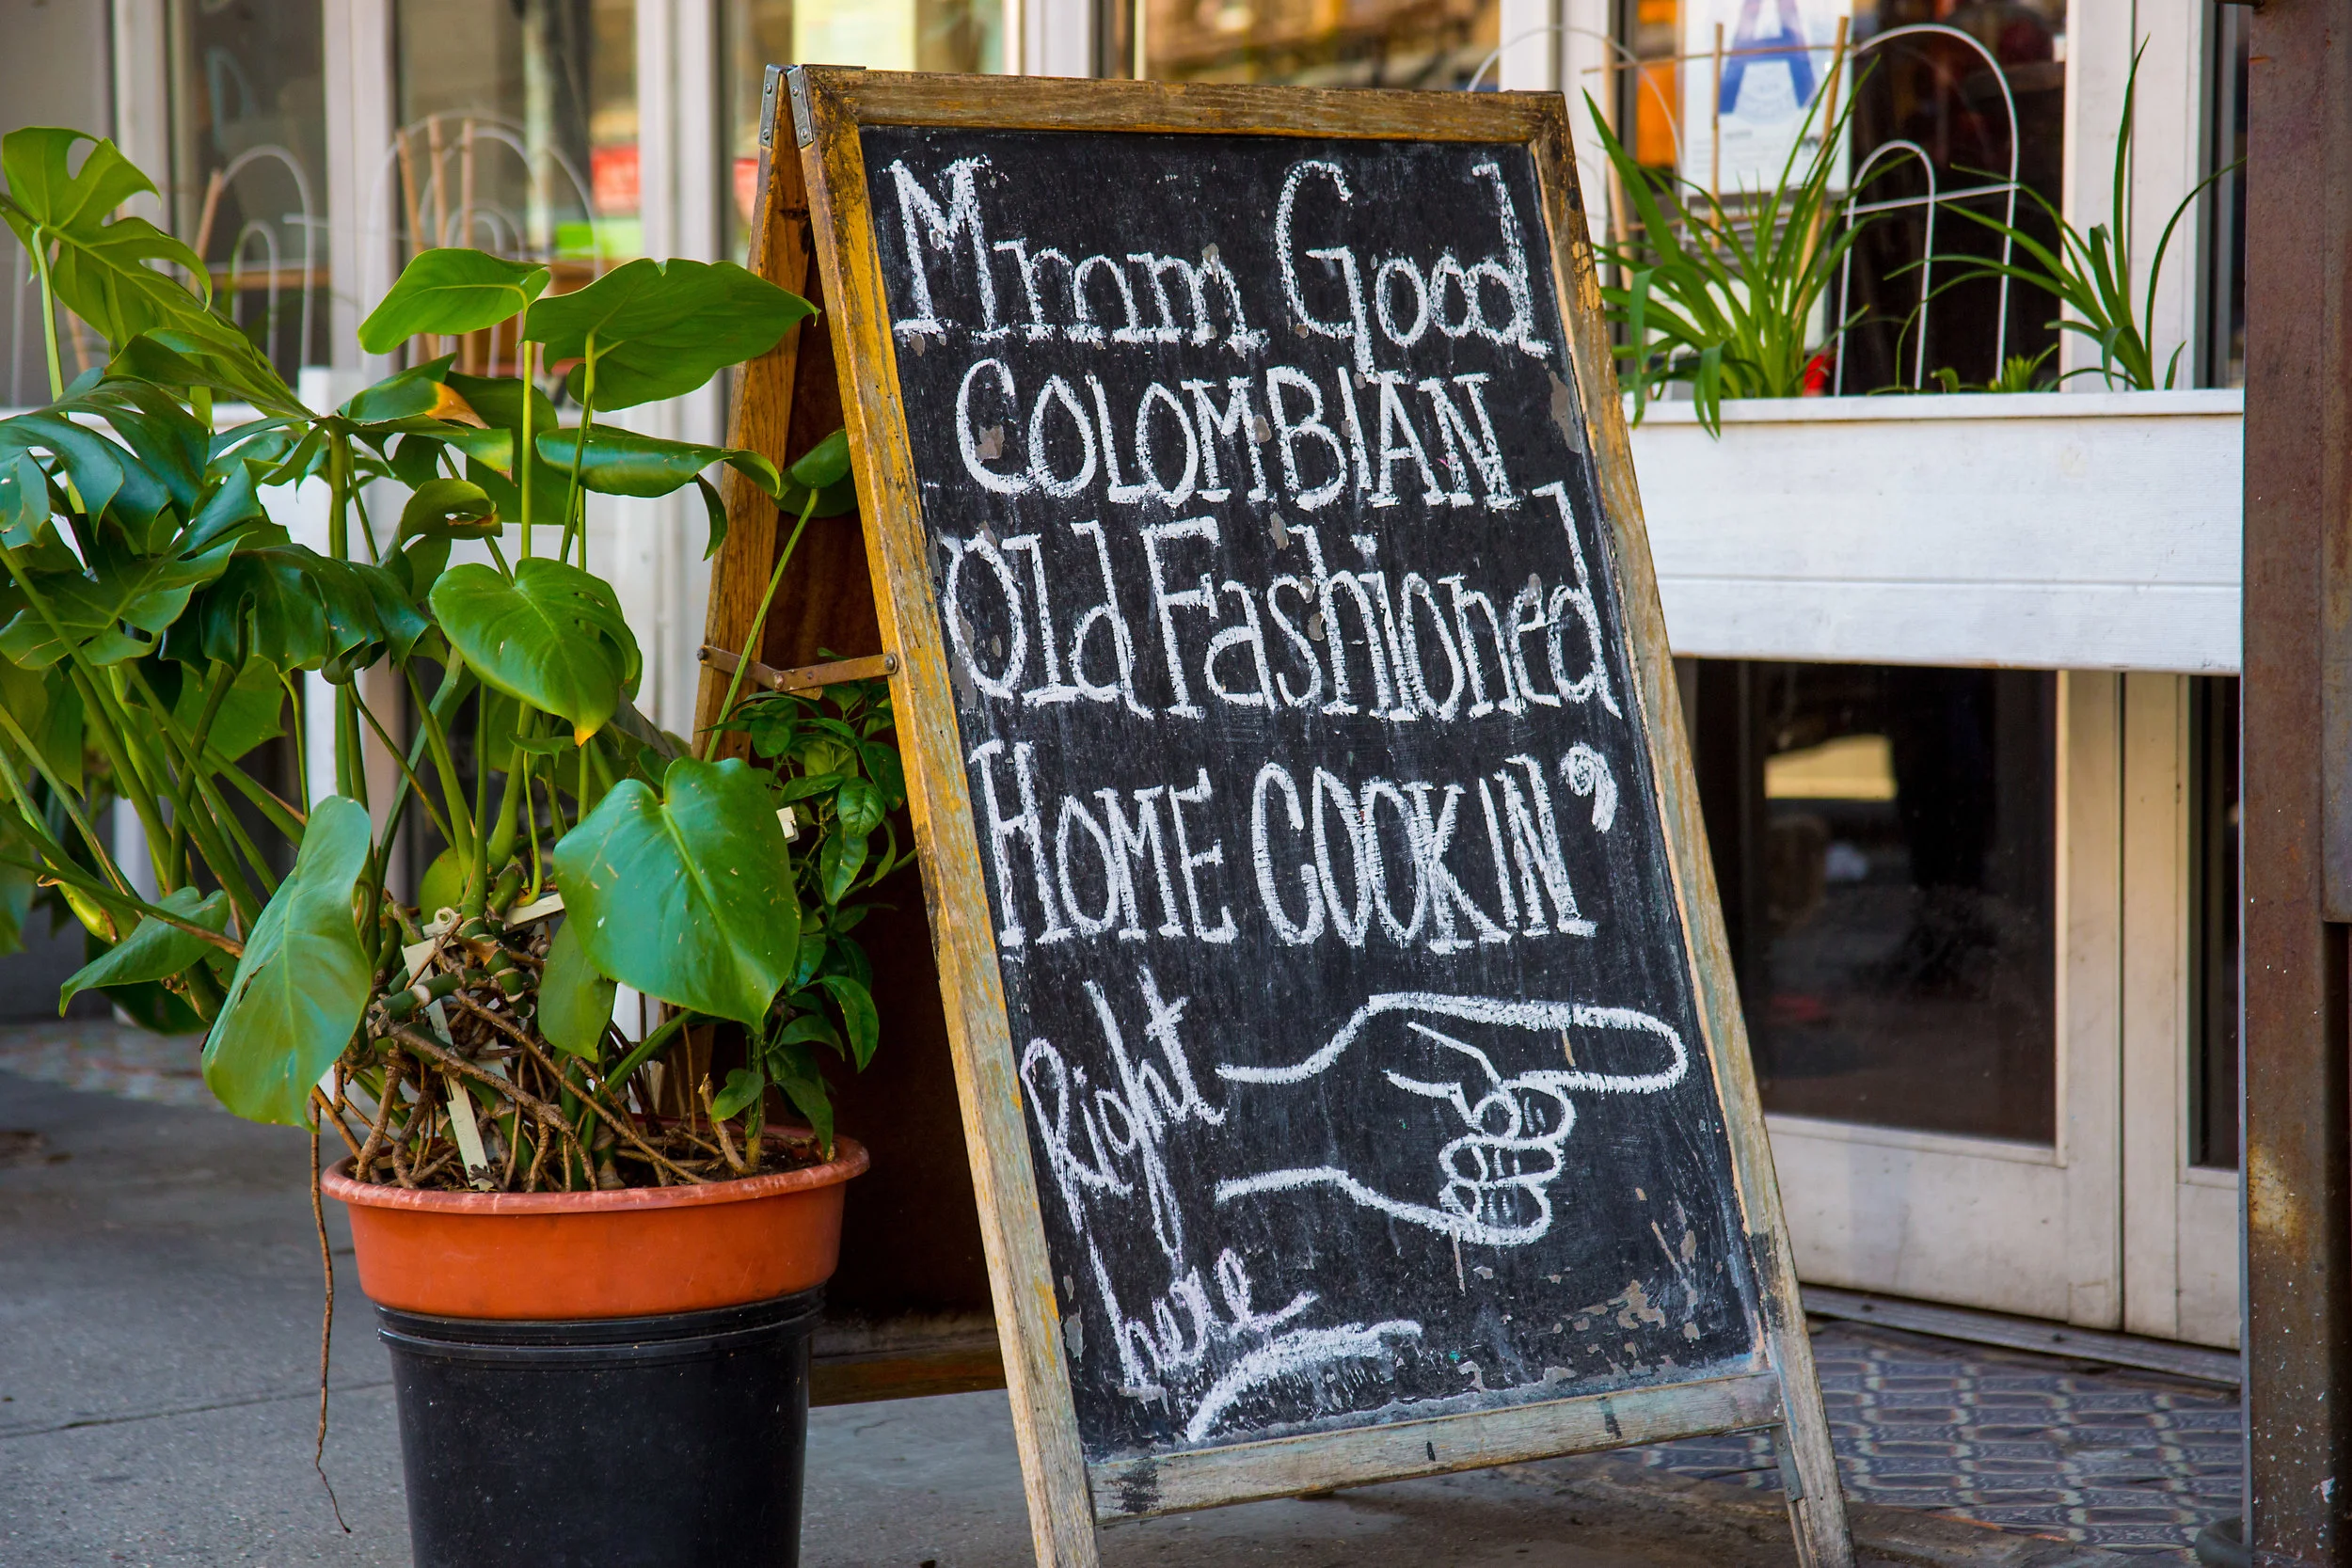 Mmm Good
COLOMBIAN
Old Fashioned
HOME COOKIN'
Right
here
A